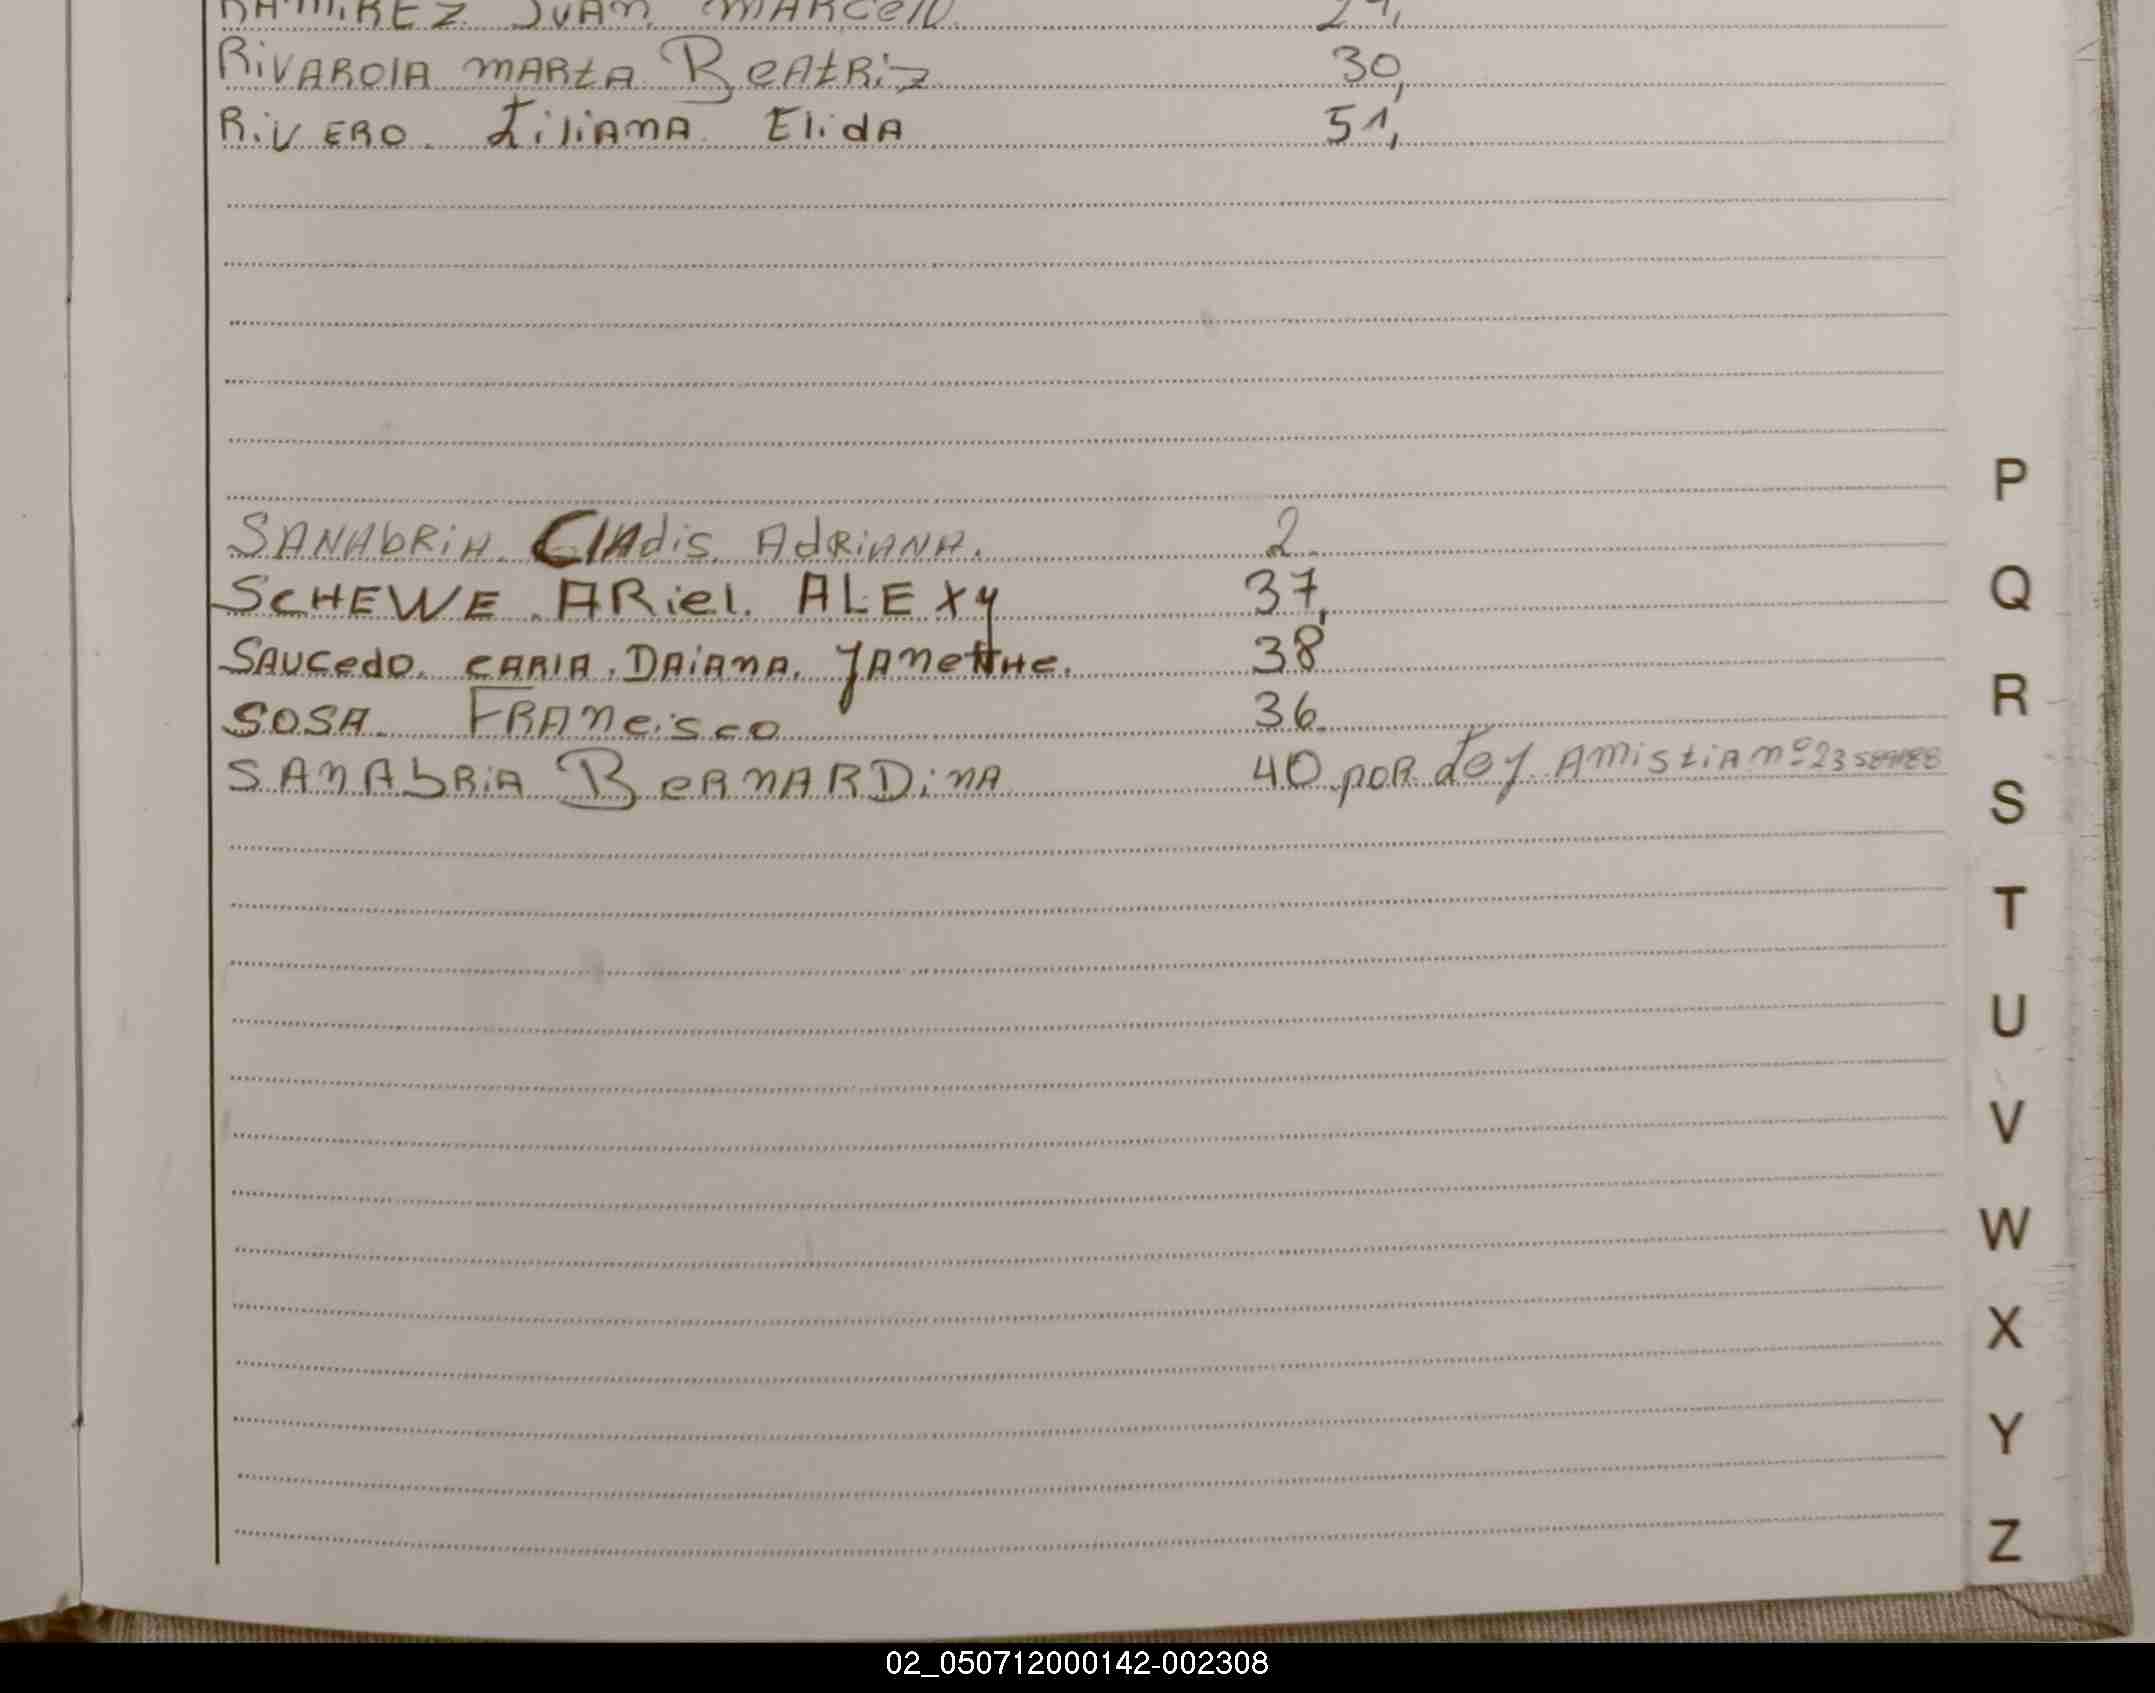 RAMIREZ JUAN MARCElO
RiVAROlA MARtA BeAtRiz 30,
RiVERO. LiliAnA Elida 51,
SANAbRiA. ClAdis AdRiANA. 2.
SCHEWE. ARiel. ALEXY 37,
SAUCedo. CARlA. DAiAnA. YAnettHe. 38
SOSA. FRAncisco 36.
SAnAbRiA BeRnARDinA 40 poR Ley Amistia nº
P
Q
R
S
T
U
V
W
X
Y
Z
02_050712000142-002308